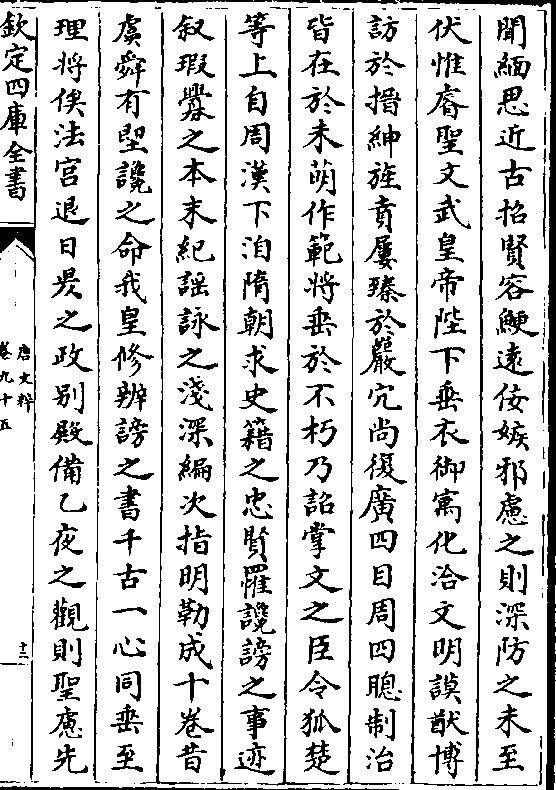 聞緬思近古招賢容鯁遠佞嫉邪慮之則深防之未至
伏惟睿聖文武皇帝陛下垂衣御㝢化洽文明謨猷博
訪於搢紳旌賁屢臻於巖穴尚復廣四目周四聰制治
皆在於未萌作範將垂於不朽乃詔掌文之臣令狐楚
等上自周漢下洎隋朝求史籍之忠賢罹讒謗之事迹
叙瑕釁之本末紀謡詠之淺深編次指明勒成十卷昔
虞舜有堲讒之命我皇修辨謗之書千古一心同垂至
理將俟法宫退日昃之政别殿備乙夜之觀則聖慮先
欽定四庫全書
唐文粹
卷九十五
十二